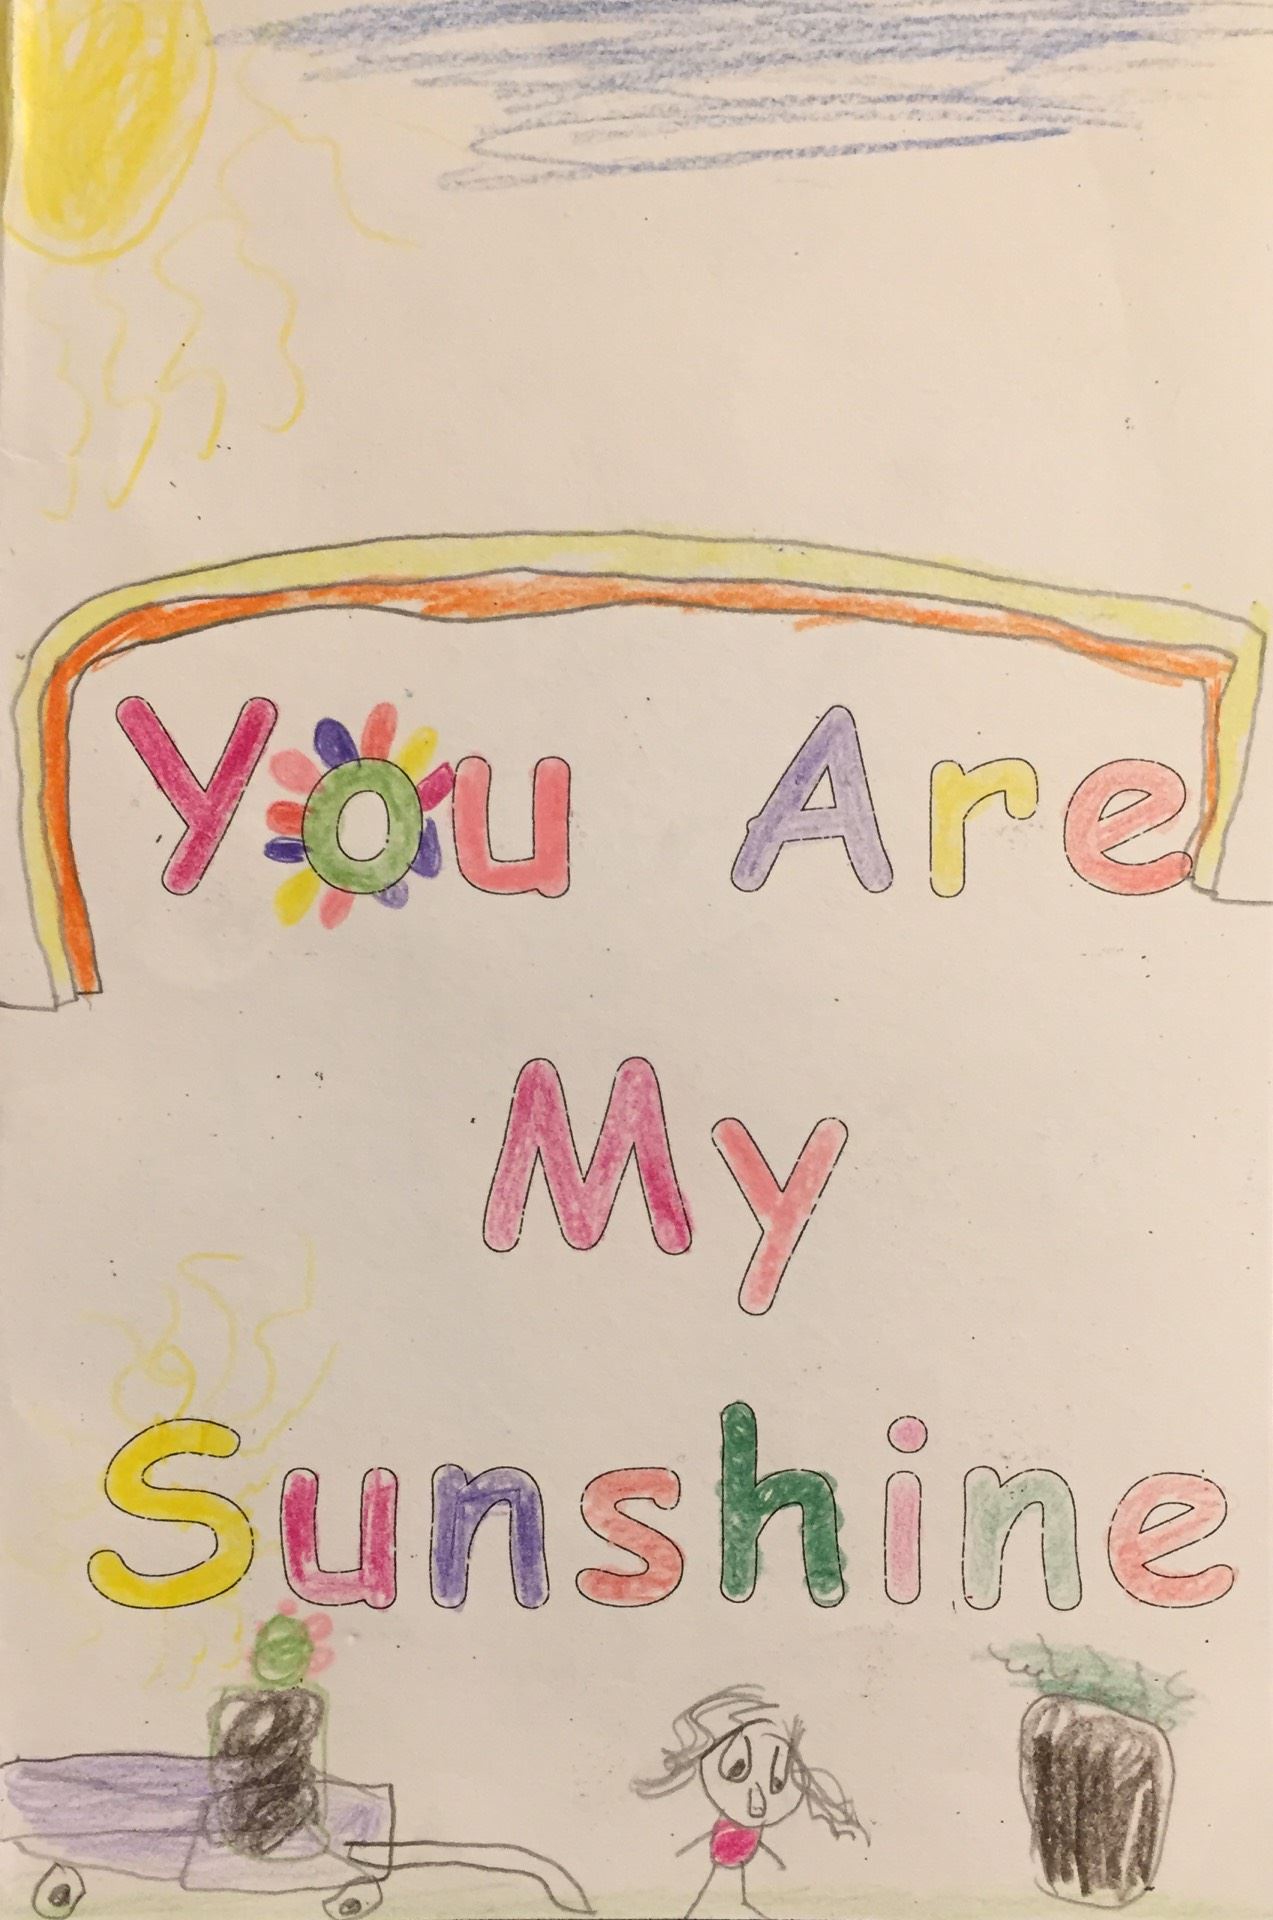 You Are
My
Sunshine